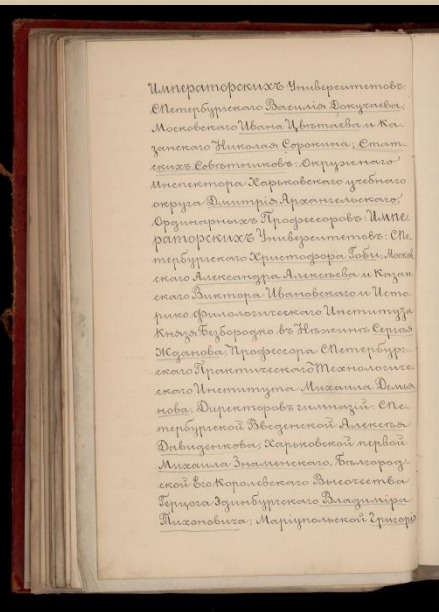 Императорскихъ Университетовъ:
СПетербургскаго Василія Докучаева,
Московскаго Ивана Цвѣтаева и Ка-
занскаго Николая Сорокина; Стат-
скихъ Совѣтниковъ: Окружнаго
Инспектора Харьковскаго учебнаго
округа Дмитрія Архангельскаго,
Ординарныхъ Профессоровъ: Импе-
раторскихъ Университетовъ: СПе-
тербургскаго Христофора Гоби, Москов-
скаго Александра Алексѣева и Казан-
скаго Виктора Ивановскаго и Исто-
рико-филологическаго Института
Князя Безбородко въ Нѣжинѣ Сергѣя
Жданова, Профессора СПетербург-
скаго Практическаго Технологиче-
скаго Института Михаила Демья-
нова, Директоровъ гимназій: СПе-
тербургской Введенской Алексѣя
Давиденкова, Харьковской первой
Михаила Знаменскаго, Бѣлгород-
ской Его Королевскаго Высочества
Герцога Эдинбургскаго Владиміра
Тихоновича, Маріупольской Григорі